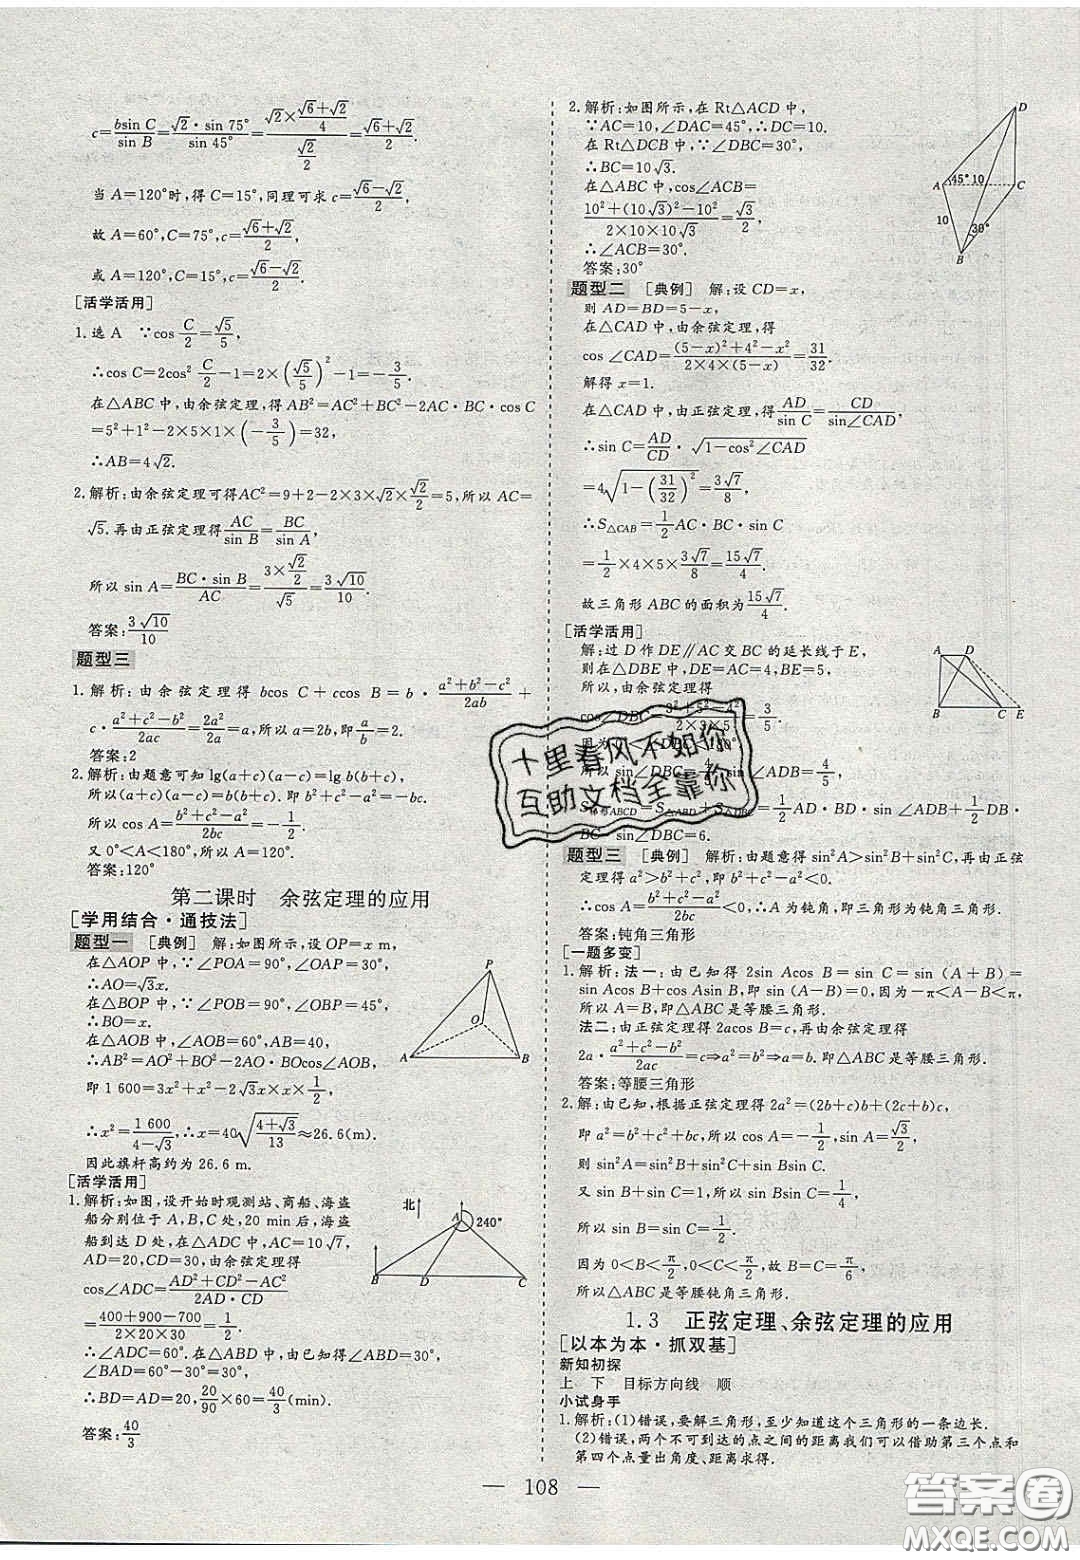 c=\frac{bsin C}{sin B}=\frac{√2·sin 75°}{sin 45°}=\frac{√2×\frac{√6+√2}{4}}{\frac{√2}{2}}=\frac{√6+√2}{2}.
当 A=120°时,得 C=15°,同理可求 c=\frac{√6-√2}{2},
故 A=60°,C=75°,c=\frac{√6+√2}{2},
或 A=120°,C=15°,c=\frac{√6-√2}{2}.
[活学活用]
1.选 A ∵cos \frac{C}{2}=\frac{√5}{5},
∴cos C=2cos² \frac{C}{2}-1=2×(\frac{√5}{5})²-1=-\frac{3}{5}.
在△ABC 中,由余弦定理,得 AB²=AC²+BC²-2AC·BC·cos C
=5²+1²-2×5×1×(-\frac{3}{5})=32,
∴AB=4√2.
2.解析:由余弦定理可得AC²=9+2-2×3×√2×\frac{√2}{2}=5,所以 AC=
√5.再由正弦定理得\frac{AC}{sin B}=\frac{BC}{sin A},
所以 sin A=\frac{BC·sin B}{AC}=\frac{3×\frac{√2}{2}}{√5}=\frac{3√10}{10}.
答案:\frac{3√10}{10}
题型三
1.解析:由余弦定理得 bcos C+ccos B=b·\frac{a²+b²-c²}{2ab}+
c·\frac{a²+c²-b²}{2ac}=\frac{2a²}{2a}=a,所以 a=2b,即\frac{a}{b}=2.
答案:2
2.解析:由题意可知 lg(a+c)(a-c)=lg b(b+c),
所以(a+c)(a-c)=b(b+c).即 b²+c²-a²=-bc.
所以 cos A=\frac{b²+c²-a²}{2bc}=-\frac{1}{2}.
又 0°<A<180°,所以 A=120°.
答案:120°
第二课时 余弦定理的应用
[学用结合·通技法]
题型一 [典例] 解:如图所示,设 OP=x m,
在△AOP 中,∵∠POA=90°,∠OAP=30°,
∴AO=√3x.
在△BOP 中,∵∠POB=90°,∠OBP=45°,
∴BO=x.
在△AOB 中,∠AOB=60°,AB=40,
∴AB²=AO²+BO²-2AO·BOcos∠AOB,
即 1 600=3x²+x²-2√3 x×x×\frac{1}{2},
∴x²=\frac{1 600}{4-√3},∴x=40√\frac{4+√3}{13}≈26.6(m).
因此旗杆高约为 26.6 m.
P
O
A
B
[活学活用]
1.解析:如图,设开始时观测站、商船、海盗
船分别位于 A,B,C 处,20 min 后,海盗
船到达 D 处,在△ADC 中,AC=10√7,
AD=20,CD=30,由余弦定理得
cos∠ADC=\frac{AD²+CD²-AC²}{2AD·CD}
=\frac{400+900-700}{2×20×30}=\frac{1}{2}.
∴∠ADC=60°.在△ABD 中,由已知得∠ABD=30°,
∠BAD=60°-30°=30°,
∴BD=AD=20,\frac{20}{90}×60=\frac{40}{3}(min).
答案:\frac{40}{3}
北
A
240°
B
D
C
2.解析:如图所示,在 Rt△ACD 中,
∵AC=10,∠DAC=45°,∴DC=10.
在 Rt△DCB 中,∵∠DBC=30°,
∴BC=10√3.
在△ABC 中,cos∠ACB=
\frac{10²+(10√3)²-10²}{2×10×10√3}=\frac{√3}{2},
∴∠ACB=30°.
答案:30°
D
A
45°
10
C
10
30°
B
题型二 [典例] 解:设 CD=x,
则 AD=BD=5-x,
在△CAD 中,由余弦定理,得
cos ∠CAD=\frac{(5-x)²+4²-x²}{2×4×(5-x)}=\frac{31}{32}.
解得 x=1.
在△CAD 中,由正弦定理,得\frac{AD}{sin C}=\frac{CD}{sin∠CAD},
∴sin C=\frac{AD}{CD}·√1-cos²∠CAD
=4√1-(\frac{31}{32})²=\frac{3√7}{8},
∴S△CAB=\frac{1}{2}AC·BC·sin C
=\frac{1}{2}×4×5×\frac{3√7}{8}=\frac{15√7}{4}.
故三角形 ABC 的面积为\frac{15√7}{4}.
[活学活用]
解:过 D 作 DE∥AC 交 BC 的延长线于 E,
则在△DBE 中,DE=AC=4,BE=5,
所以,由余弦定理得
cos∠DBC=\frac{3²+5²-4²}{2×3×5}=\frac{3}{5}.
所以 sin∠DBC=\frac{4}{5},sin ∠ADB=\frac{4}{5},
ABCD=S△ABD+S =\frac{1}{2}AD·BD·sin ∠ADB+\frac{1}{2}DB·
BC·sin∠DBC=6.
A
D
B
C
E
十里春风不如你
互助文档全靠你
题型三 [典例] 解析:由题意得 sin²A>sin²B+sin²C,再由正弦
定理得 a²>b²+c²,即 b²+c²-a²<0.
∴cos A=\frac{b²+c²-a²}{2bc}<0,∴A 为钝角,即三角形为钝角三角形.
答案:钝角三角形
[一题多变]
1.解析:法一:由已知得 2sin Acos B=sin C=sin (A+B)=
sin Acos B+cos Asin B,即 sin (A-B)=0,因为-π<A-B<π,
所以 A=B,即△ABC 是等腰三角形.
法二:由正弦定理得 2acos B=c,再由余弦定理得
2a·\frac{a²+c²-b²}{2ac}=c⇒a²=b²⇒a=b.即△ABC 是等腰三角形.
答案:等腰三角形
2.解:由已知,根据正弦定理得 2a²=(2b+c)b+(2c+b)c,
即 a²=b²+c²+bc,所以cos A=-\frac{1}{2},sin A=\frac{√3}{2},
则 sin²A=sin²B+sin²C+sin Bsin C.
又 sin B+sin C=1,所以 sin Bsin C=\frac{1}{4},
所以 sin B=sin C=\frac{1}{2}.
因为 0<B<\frac{π}{2},0<C<\frac{π}{2},故 B=C=\frac{π}{6},
所以△ABC 是等腰钝角三角形.
1.3 正弦定理、余弦定理的应用
[以本为本·抓双基]
新知初探
上 下 目标方向线 顺
小试身手
1.解析:(1)错误,要解三角形,至少知道这个三角形的一条边长.
(2)错误,两个不可到达的点之间的距离我们可以借助第三个点和
第四个点量出角度、距离求得.
— 108 —
答案圈
MXQE.COM